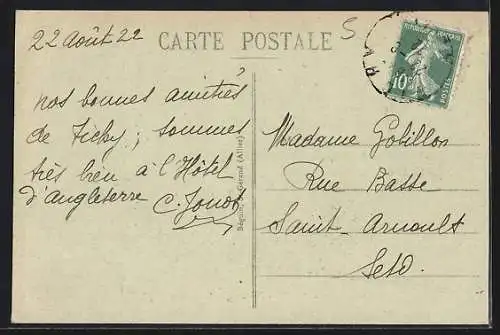 22 Août 22
CARTE POSTALE
5
RÉPUBLIQUE FRANÇAISE
10c
POSTES
nos bonnes amitiés
de Vichy ; sommes
très bien à l'Hôtel
d'Angleterre
Madame Gobillon
Rue Basse
Saint-Arnoult
S et O.
Béguin, St-Gérand (Allier)